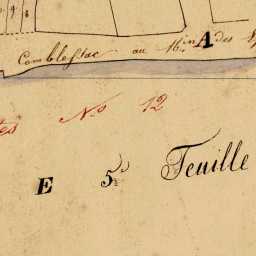 Comblessac au Min A des
tes No 12
E 5e Feuille